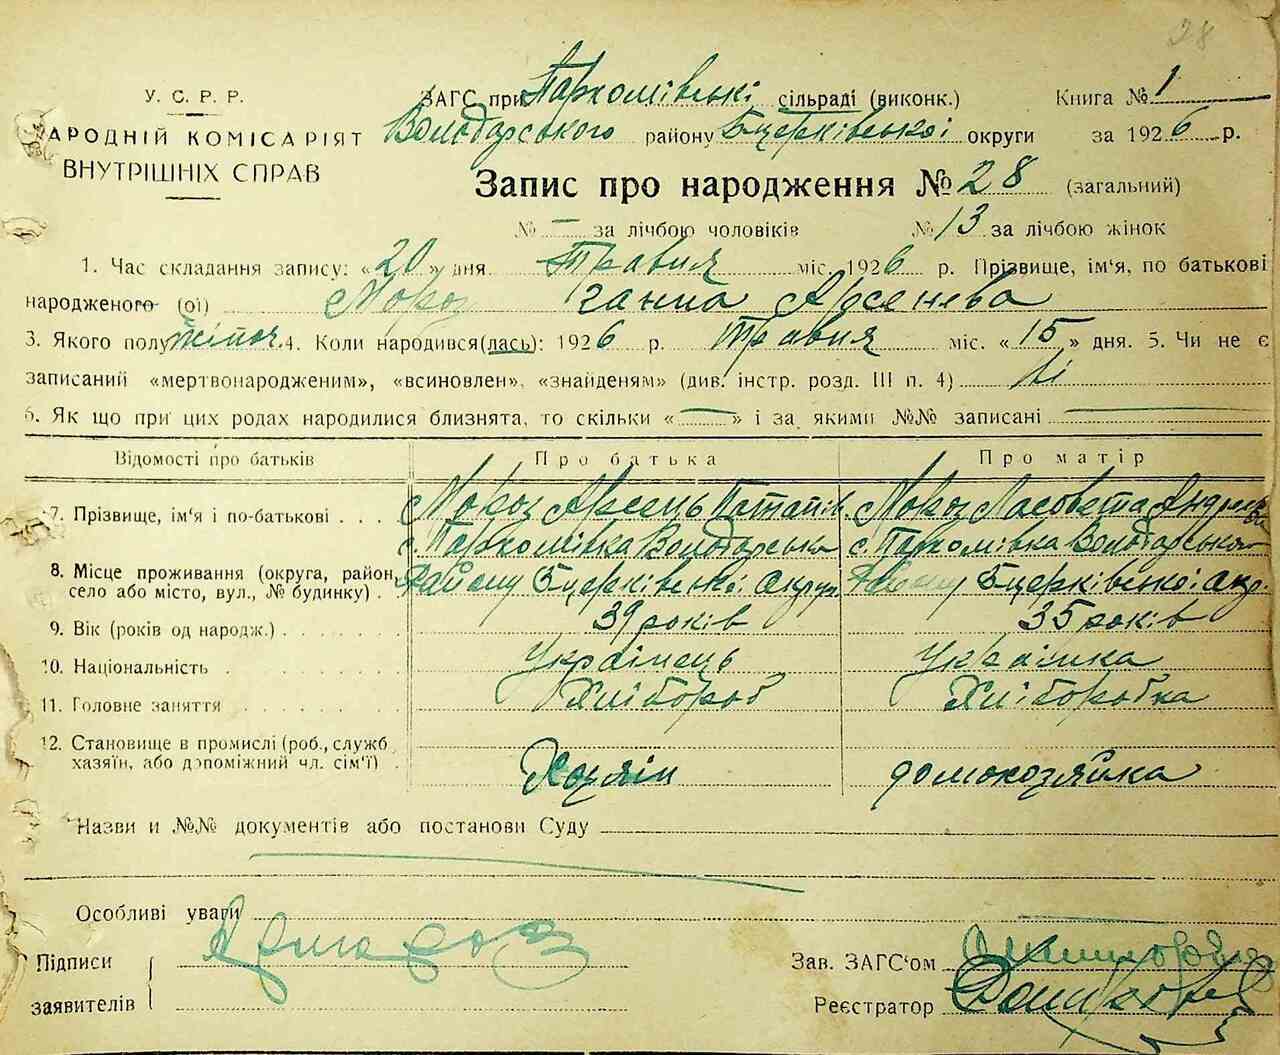 28
У. С. Р. Р.
НАРОДНІЙ КОМІСАРІЯТ
ВНУТРІШНІХ СПРАВ
ЗАГС при Пархомівські сільраді (виконк.) Книга № 1
Володарського району Бцерківської округи за 1926 р.
Запис про народження № 28 (загальний)
№ – за лічбою чоловіків № 13 за лічбою жінок
1. Час складання запису: «20» дня Травня міс. 1926 р. Прізвище, ім'я, по батькові
народженого (ої) Мороз Ганна Арсенева
3. Якого полу жіноч. 4. Коли народився(лась): 1926 р. Травня міс. «15» дня. 5. Чи не є
записаний «мертвонародженим», «всиновлен», «знайденям» (див. інстр. розд. III п. 4) Ні
6. Як що при цих родах народилися близнята, то скільки «—» і за якими №№ записані —
Відомості про батьків Про батька Про матір
7. Прізвище, ім'я і по-батькові . . . Мороз Арсень Потапів. Мороз Лисовета Андре
с. Пархомівка Володарська с. Пархомівка Володарського
8. Місце проживання (округа, район, Району Бцерківської Округи Району Бцерківської окр.
село або місто, вул., № будинку) .
9. Вік (років од народж.) . . . . . 39 років 35 років
10. Національність . . . . . Українець Українка
11. Головне заняття . . . . . Хлібороб Хліборобка
12. Становище в промислі (роб., служб.
хазяїн, або допоміжний чл. сім'ї) . Хозяін домохозяйка
Назви и №№ документів або постанови Суду
Особливі уваги
Підписи
заявителів
Зав. ЗАГС'ом
Реєстратор